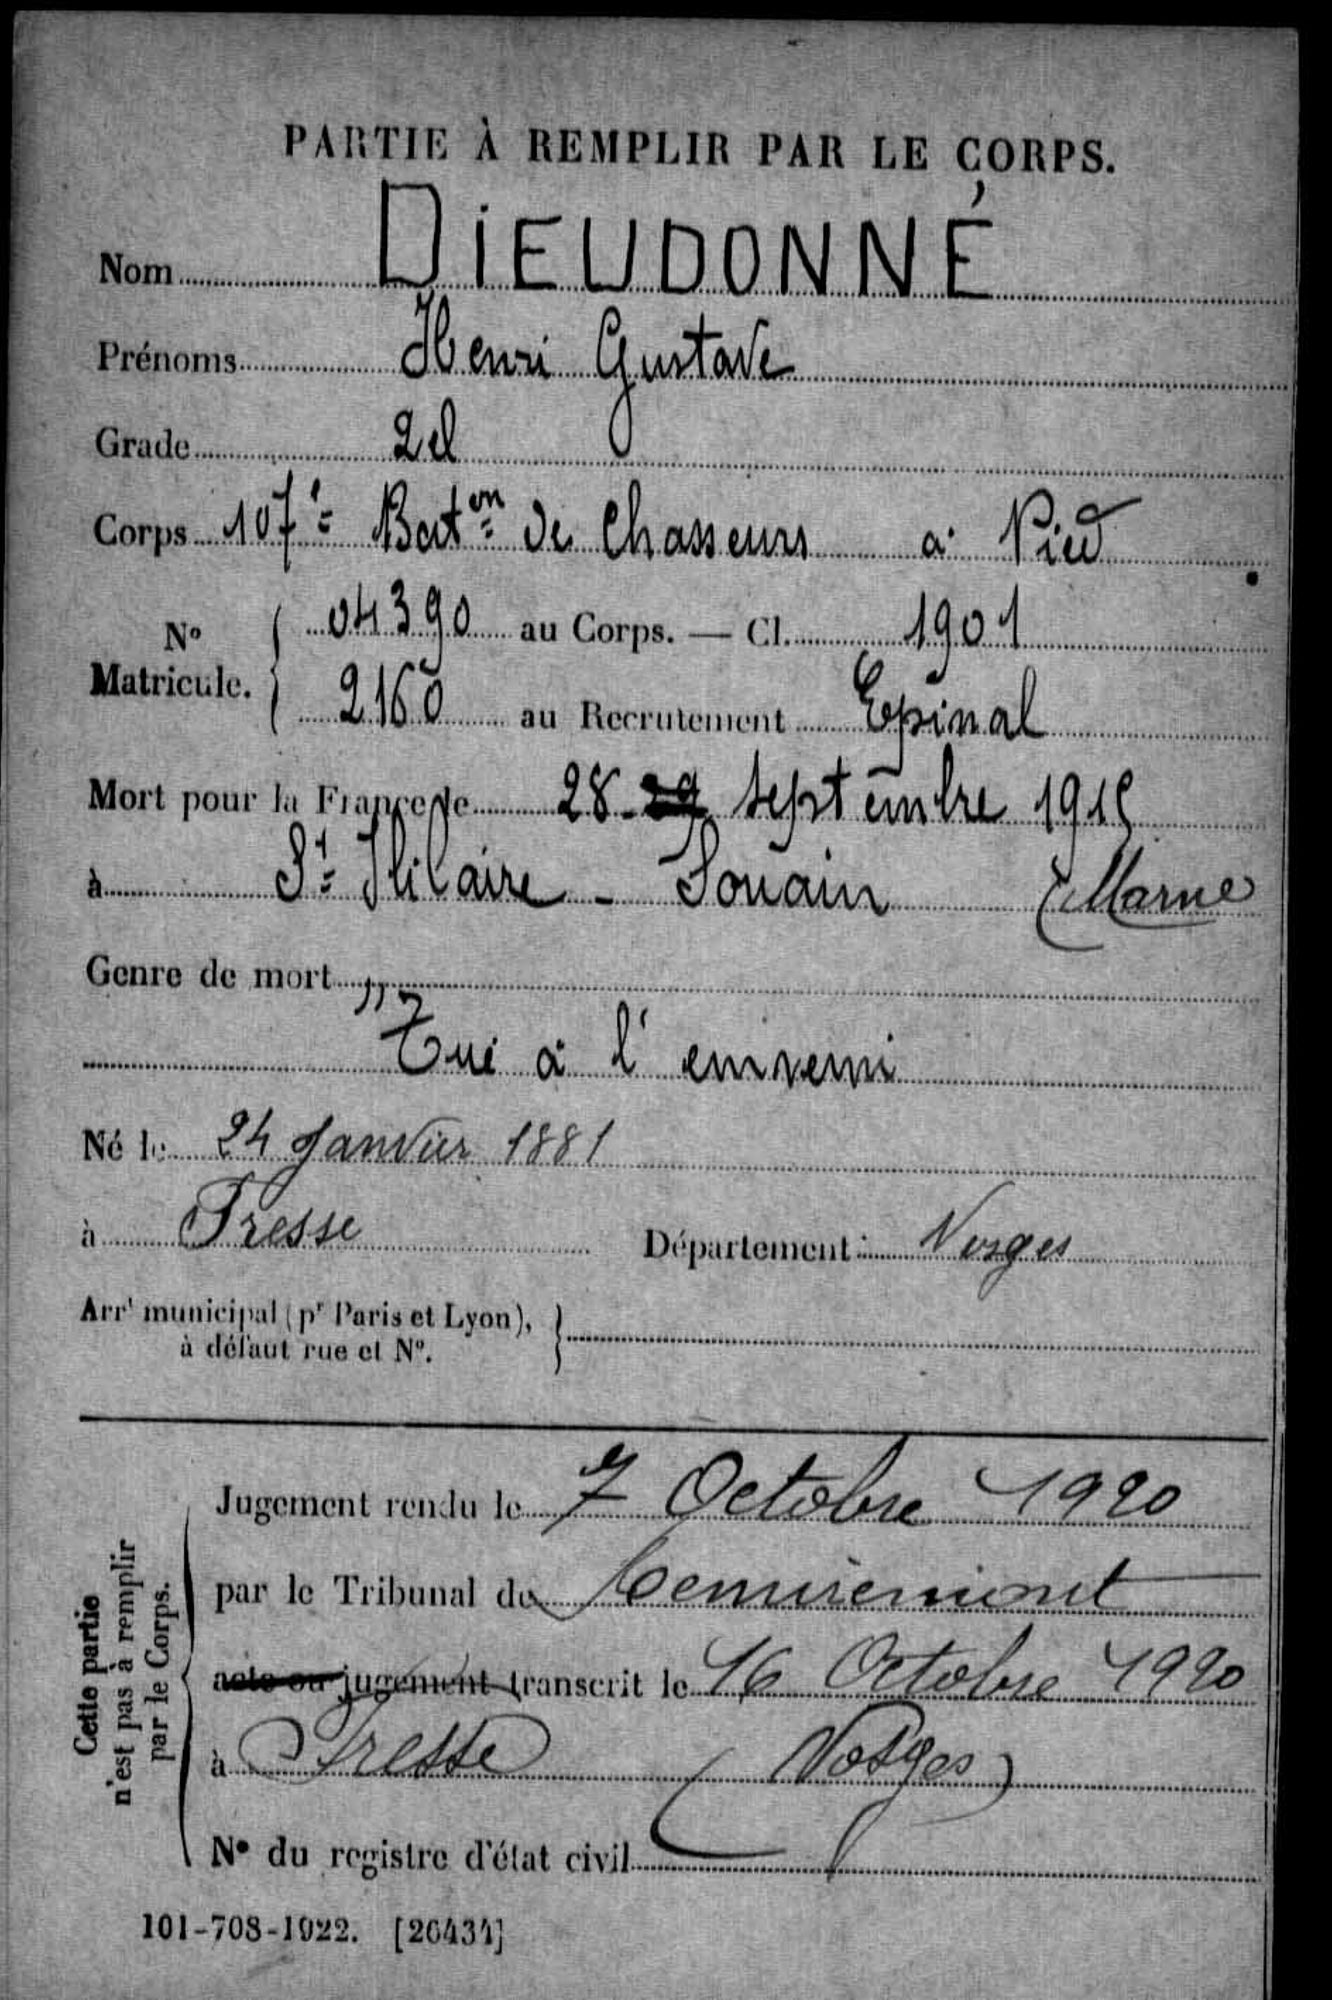 PARTIE À REMPLIR PAR LE CORPS.
Nom DIEUDONNÉ
Prénoms Henri Gustave
Grade 2 cl
Corps 107e Baton de Chasseurs à Pied
No Matricule. 04390 au Corps. — Cl. 1901
2160 au Recrutement Epinal
Mort pour la France le 28 - 29 septembre 1915
à St Hilaire - Souain (Marne
Genre de mort "
Tué à l'ennemi
Né le 24 Janvier 1881
à Fresse Département Vosges
Arrt municipal (pr Paris et Lyon),
à défaut rue et No.
Cette partie
n'est pas à remplir
par le Corps.
Jugement rendu le 7 Octobre 1920
par le Tribunal de Remiremont
acte ou jugement transcrit le 16 Octobre 1920
à Fresse (Vosges)
No du registre d'état civil
101-708-1922. [26434]